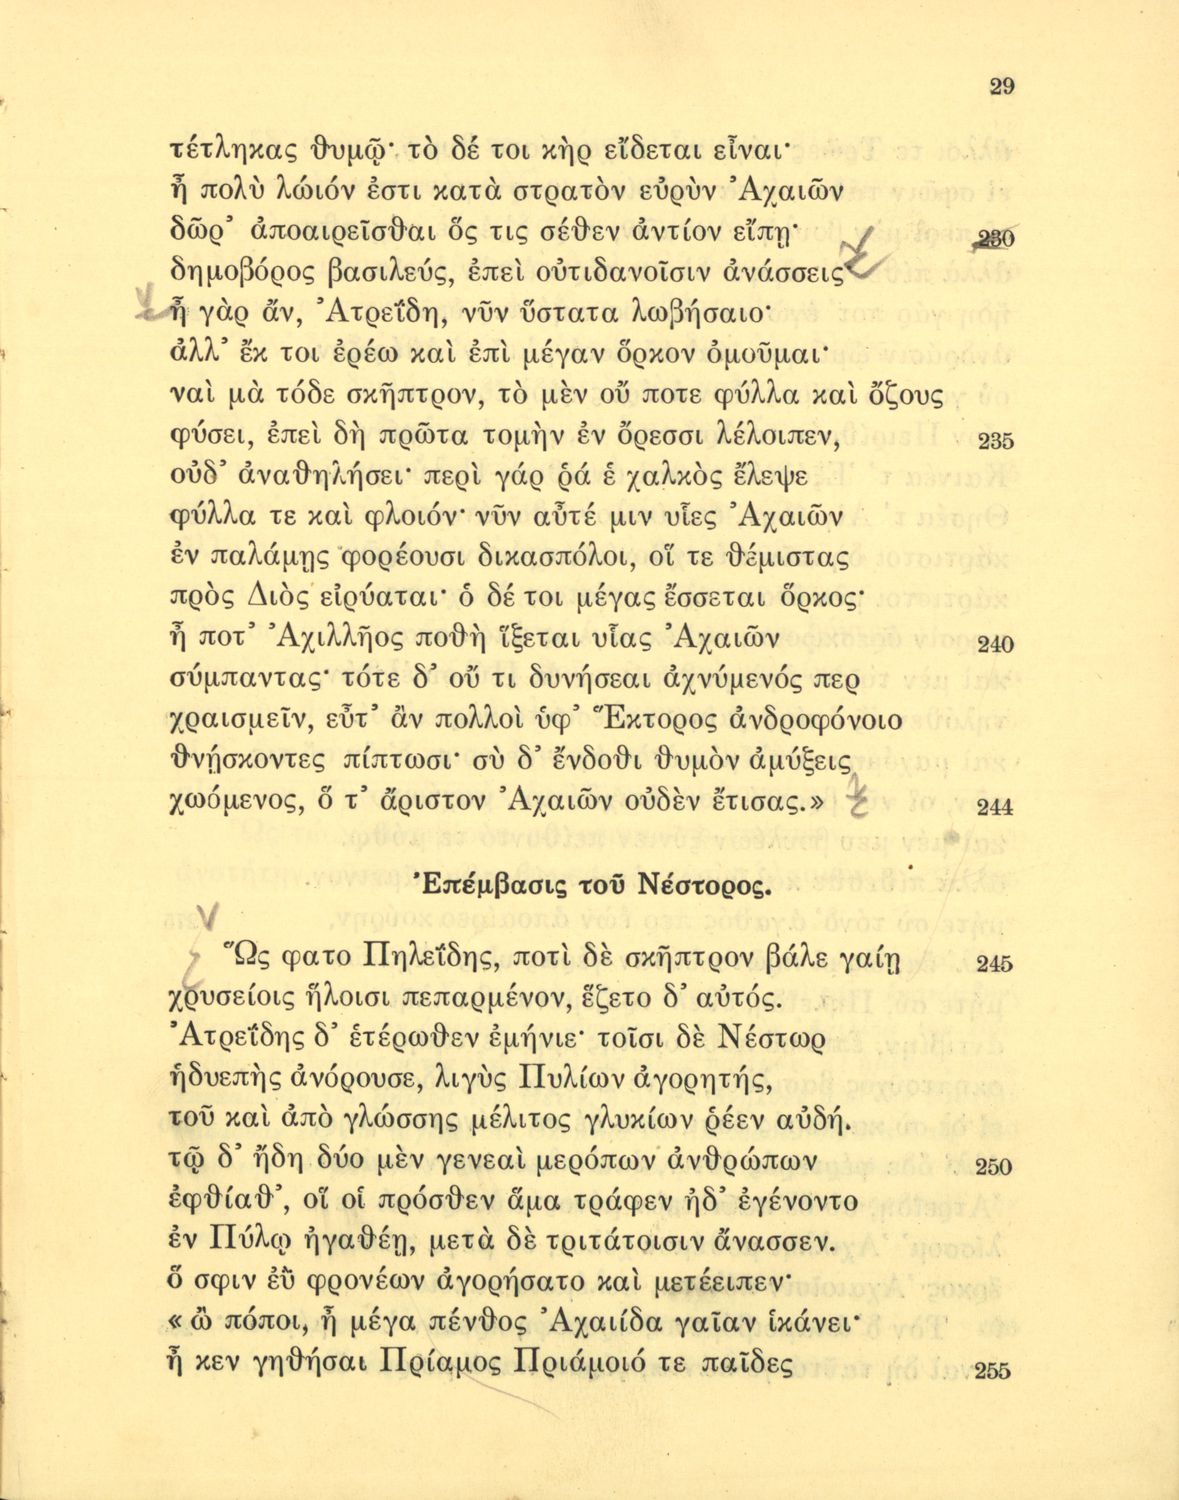 29
τέτληκας θυμῷ· τὸ δέ τοι κὴρ εἴδεται εἶναι·
ἦ πολὺ λώιόν ἐστι κατὰ στρατὸν εὐρὺν Ἀχαιῶν
δῶρ’ ἀποαιρεῖσθαι ὅς τις σέθεν ἀντίον εἴπῃ· 230
δημοβόρος βασιλεύς, ἐπεὶ οὐτιδανοῖσιν ἀνάσσεις·
ἦ γὰρ ἄν, Ἀτρεΐδη, νῦν ὕστατα λωβήσαιο·
ἀλλ’ ἔκ τοι ἐρέω καὶ ἐπὶ μέγαν ὅρκον ὀμοῦμαι·
ναὶ μὰ τόδε σκῆπτρον, τὸ μὲν οὔ ποτε φύλλα καὶ ὄζους
φύσει, ἐπεὶ δὴ πρῶτα τομὴν ἐν ὄρεσσι λέλοιπεν, 235
οὐδ’ ἀναθηλήσει· περὶ γάρ ῥά ἑ χαλκὸς ἔλεψε
φύλλα τε καὶ φλοιόν· νῦν αὖτέ μιν υἷες Ἀχαιῶν
ἐν παλάμῃς φορέουσι δικασπόλοι, οἵ τε θέμιστας
πρὸς Διὸς εἰρύαται· ὁ δέ τοι μέγας ἔσσεται ὅρκος·
ἦ ποτ’ Ἀχιλλῆος ποθὴ ἵξεται υἷας Ἀχαιῶν 240
σύμπαντας· τότε δ’ οὔ τι δυνήσεαι ἀχνύμενός περ
χραισμεῖν, εὖτ’ ἂν πολλοὶ ὑφ’ Ἕκτορος ἀνδροφόνοιο
θνῄσκοντες πίπτωσι· σὺ δ’ ἔνδοθι θυμὸν ἀμύξεις
χωόμενος, ὅ τ’ ἄριστον Ἀχαιῶν οὐδὲν ἔτισας.» 244
Ἐπέμβασις τοῦ Νέστορος.
Ὣς φατο Πηλεΐδης, ποτὶ δὲ σκῆπτρον βάλε γαίῃ 245
χρυσείοις ἥλοισι πεπαρμένον, ἕζετο δ’ αὐτός.
Ἀτρεΐδης δ’ ἑτέρωθεν ἐμήνιε· τοῖσι δὲ Νέστωρ
ἡδυεπὴς ἀνόρουσε, λιγὺς Πυλίων ἀγορητής,
τοῦ καὶ ἀπὸ γλώσσης μέλιτος γλυκίων ῥέεν αὐδή.
τῷ δ’ ἤδη δύο μὲν γενεαὶ μερόπων ἀνθρώπων 250
ἐφθίαθ’, οἵ οἱ πρόσθεν ἅμα τράφεν ἠδ’ ἐγένοντο
ἐν Πύλῳ ἠγαθέῃ, μετὰ δὲ τριτάτοισιν ἄνασσεν.
ὅ σφιν ἐῢ φρονέων ἀγορήσατο καὶ μετέειπεν·
«ὢ πόποι, ἦ μέγα πένθος Ἀχαιίδα γαῖαν ἱκάνει·
ἦ κεν γηθήσαι Πρίαμος Πριάμοιό τε παῖδες 255